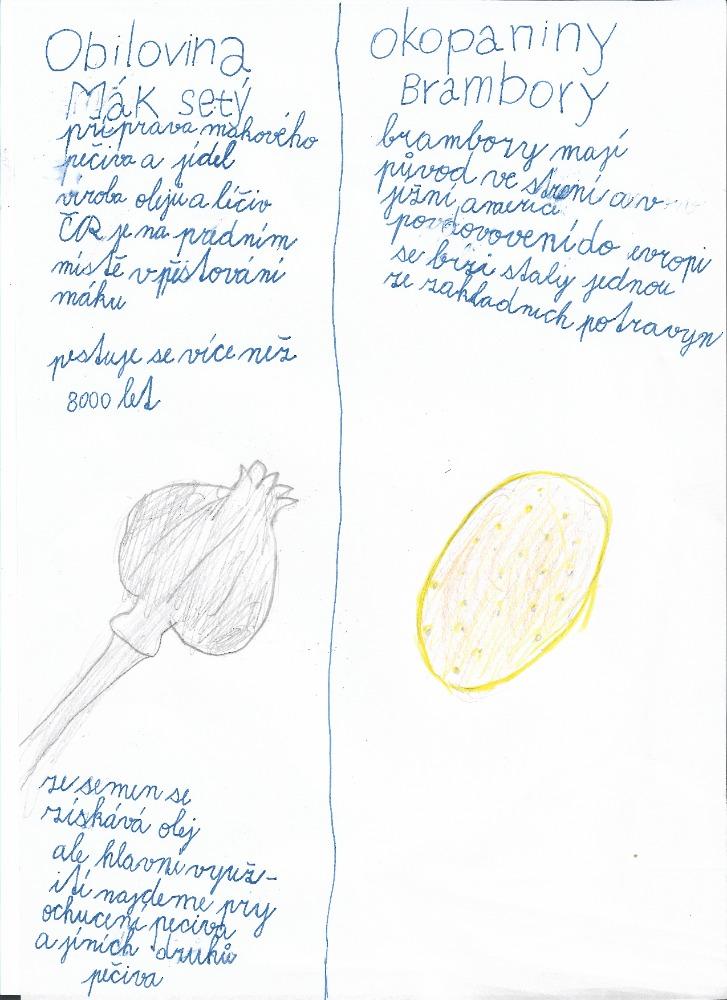 Obilovina
Mák setý
příprava makového
pečiva a jídel
víroba olejů a léčiv
ČR je na předním
místě v pěstování
máku
pestuje se více než
8000 let
ze semen se
získává olej
ale hlavní využ-
ití najdeme pry
ochucení pečiva
a jíních druhů
pečiva
okopaniny
Brambory
brambory mají
původ ve strení a v
jižní americe
po dovovení do evropi
se brzi staly jednou
ze zakladnich potravyn